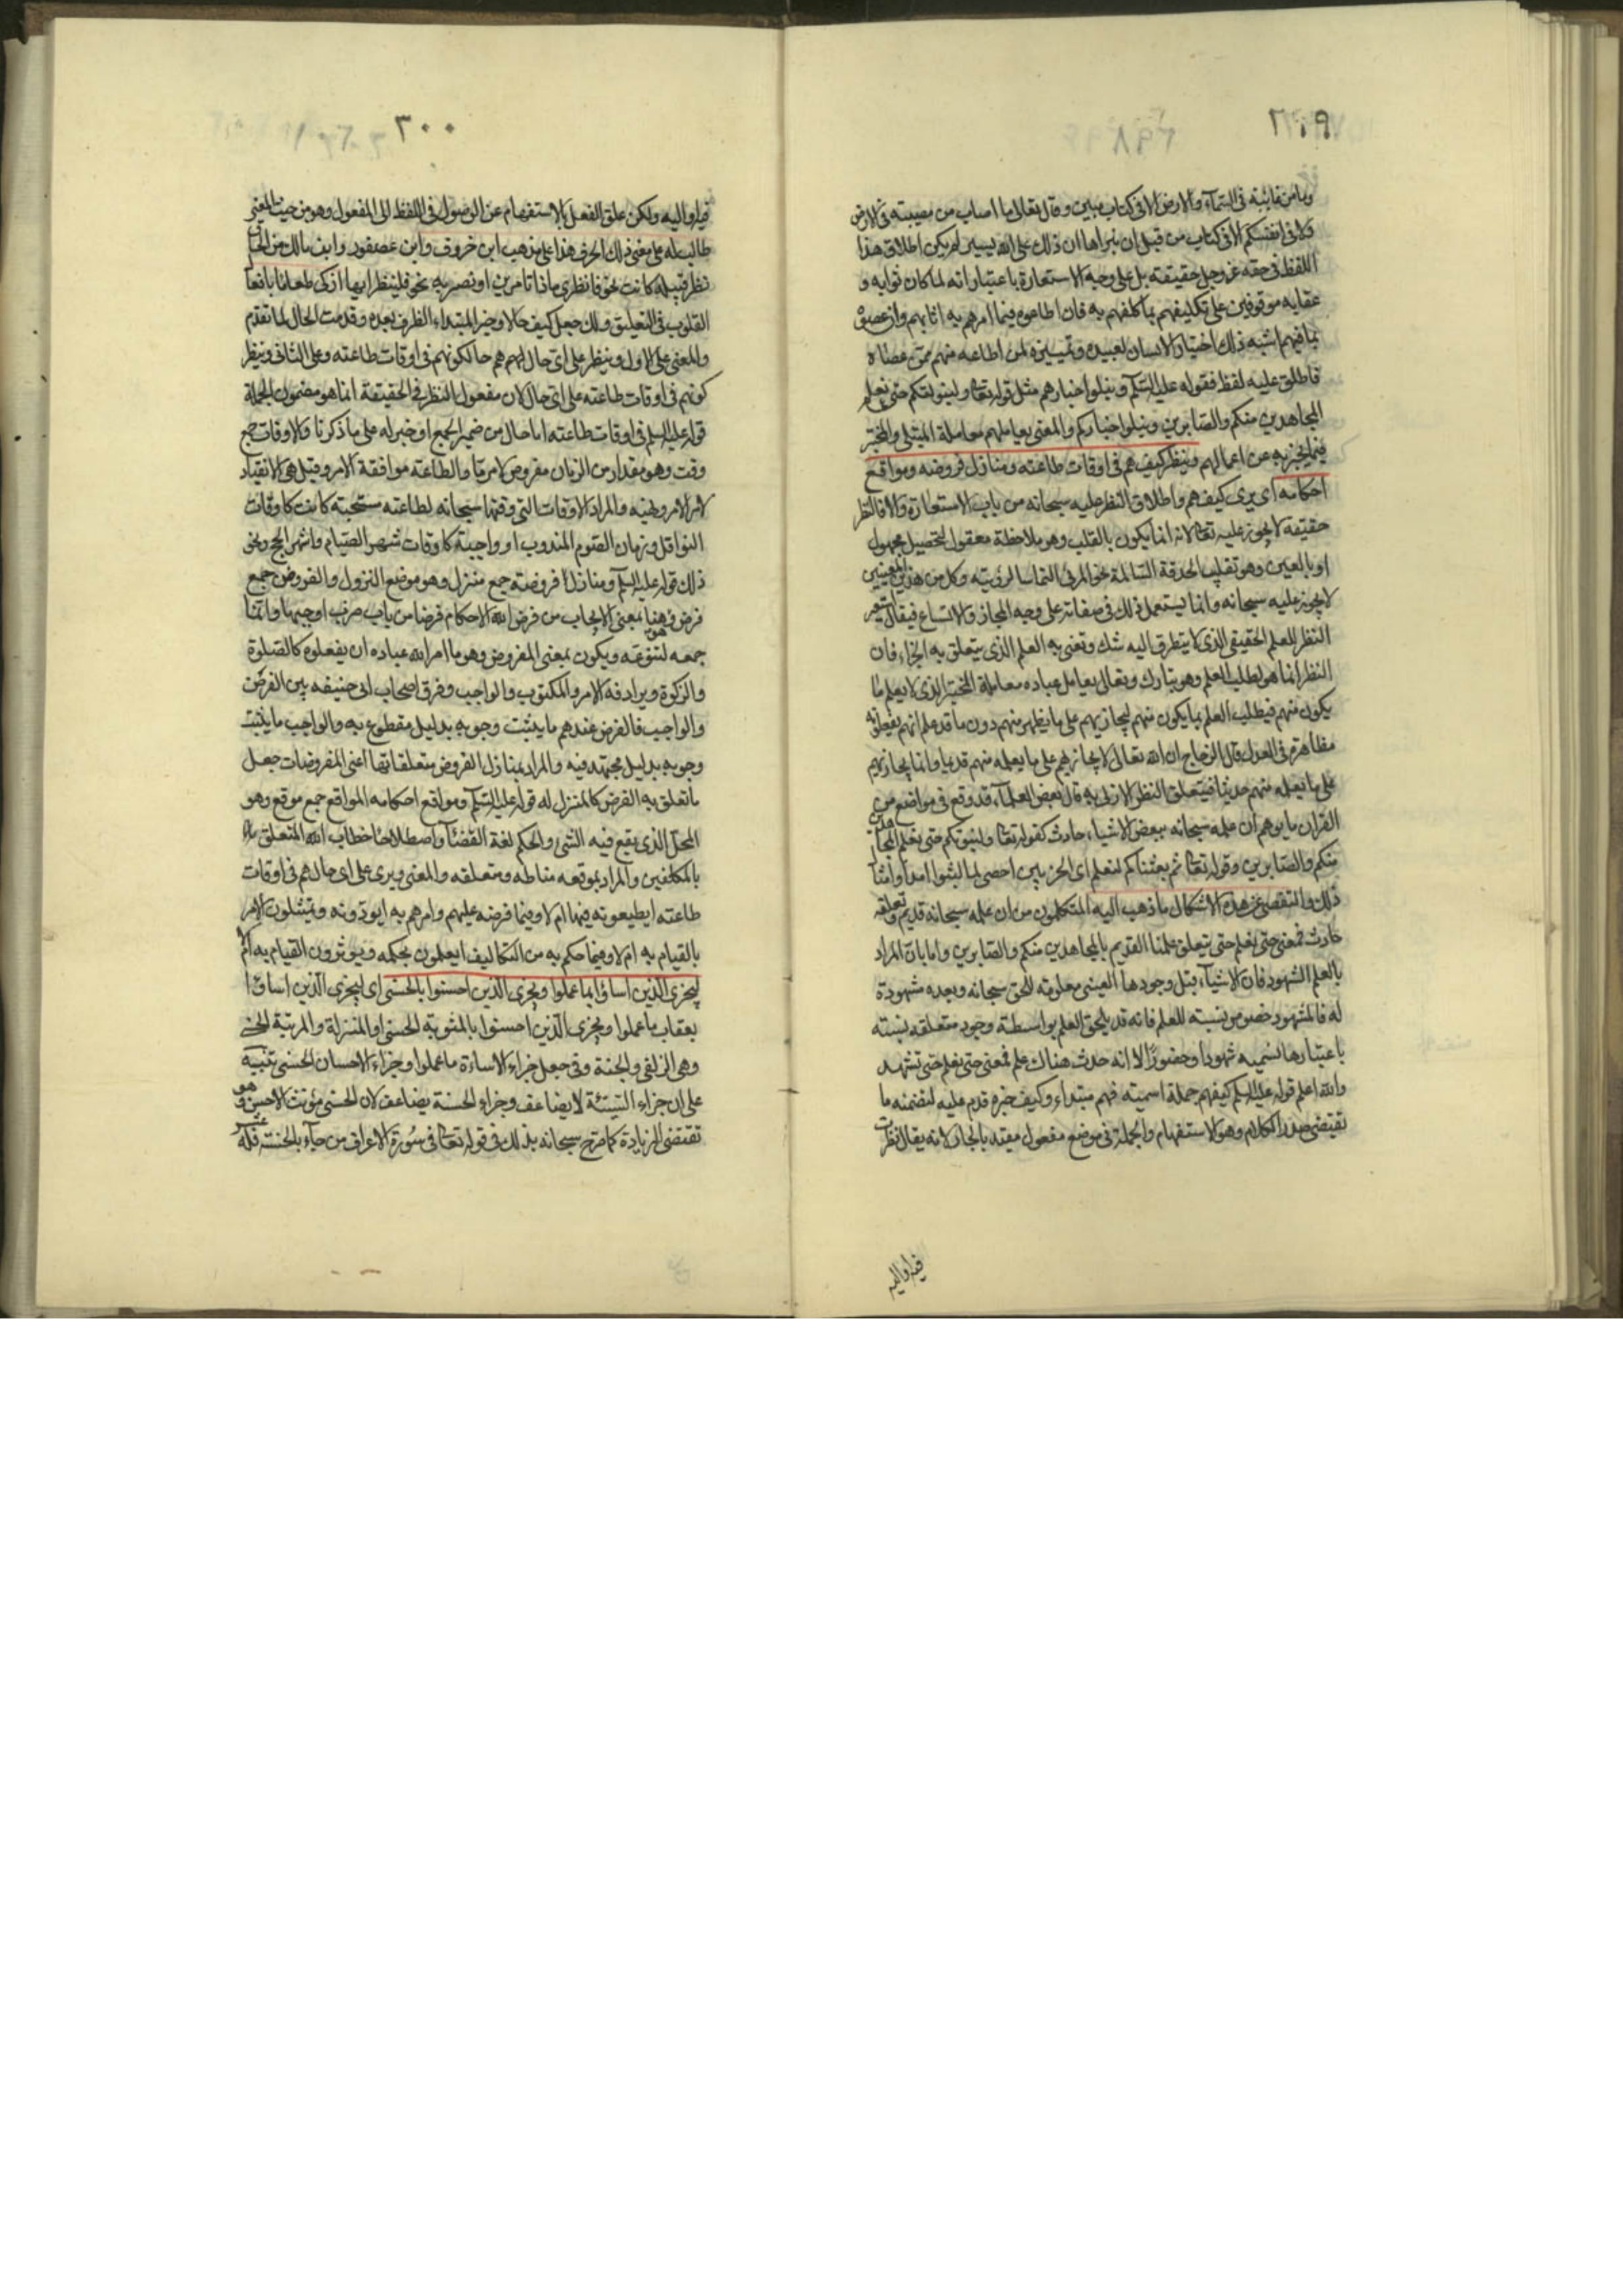 ٢٩٩
وما من غائبة فى السمآء والارض الا فى كتاب مبين وقال تعالى ما اصاب من مصيبة فى الارض
ولا فى انفسكم الا فى كتاب من قبل ان نبراها ان ذلك على الله يسير لم يكن اطلاق هذا
اللفظ فى حقه عز وجل حقيقته بل على وجه الاستعارة باعتبار انه لما كان ثوابه و
عقابه موقوفين على تكليفهم بما كلفهم به فان اطاعوه فيما امرهم به اثابهم وان عصوه
عاقبهم اشبه ذلك اختيار الانسان لعبيده وتمييزه لمن اطاعه منهم ممن عصاه
فاطلق عليه لفظه فقوله عليه السلم ويبلو اخبارهم مثل قوله تعالى ولنبلونكم حتى نعلم
المجاهدين منكم والصابرين ونبلو اخباركم والمعنى يعاملهم معاملة المبتلى والمختبر
فيما يخبر به عن اعمالهم وينظر كيف هم فى اوقات طاعته ومنازل فروضه ومواقع
احكامه اى يرى كيف هم واطلاق النظر عليه سبحانه من باب الاستعارة والا فالنظر
حقيقة لا يجوز عليه تعالى لانه انما يكون بالقلب وهو ملاحظة معقول لتحصيل مجهول
او بالعين وهو تقليب الحدقة السالمة نحو المرئى التماسا لرؤيته وكل من هذين المعنيين
لا يجوز عليه سبحانه وانما يستعمل ذلك فى صفاته على وجه المجاز والاتساع فيقال استعير
النظر للعلم الحقيقى الذى لا يتطرق اليه شك وتعنى به العلم الذى يتعلق به الجزاء فان
النظر انما هو لطلب العلم وهو تبارك وتعالى يعامل عباده معاملة المختبر الذى لا يعلم ما
يكون منهم فيطلب العلم بما يكون منهم ليجازيهم على ما يظهر منهم دون ما قد علم انهم يفعلونه
مظاهرة فى العدل قال الزجاج ان الله تعالى لا يجازيهم على ما يعلمه منهم قديما وانما يجازيهم
على ما يعلمه منهم حديثا فيتعلق النظر الازلى به قال بعض العلمآء قد وقع فى مواضع من
القران ما يوهم ان علمه سبحانه ببعض الاشياء حادث كقوله تعالى ولنبلونكم حتى نعلم المجاهدين
منكم والصابرين وقوله تعالى ثم بعثناكم لنعلم اى الحزبين احصى لما لبثوا امدا وامثال
ذلك والتفصى عن هذه الاشكال ما ذهب اليه المتكلمون من ان علمه سبحانه قديم وتعلقه
حادث فمعنى حتى نعلم حتى يتعلق علمنا القديم بالمجاهدين منكم والصابرين واما بان المراد
بالعلم الشهود فان الاشيآء قبل وجودها العينى معلومة للحق سبحانه وبعده مشهودة
له فالشهود خصوص نسبة للعلم فانه قد يلحق العلم بواسطة وجود متعلقه نسبة
باعتبارها نسميه شهودا وحضورا لا انه حدث هناك علم فمعنى حتى نعلم حتى نشهد
والله اعلم قوله عليه السلم كيف هم جملة اسمية فهم مبتداء وكيف خبره قدم عليه لتضمنه ما
يقتضى صدر الكلام وهو الاستفهام والجملة فى موضع مفعول مقيد بالجار لانه يقال نظرت
فيه او اليه
٣٠٠
فيه او اليه ولكن علق الفعل بالاستفهام عن الوصول فى اللفظ الى المفعول وهو من حيث المعنى
طالب له على معنى ذلك الحرف هذا على مذهب ابن خروف وابن عصفور وابن مالك من الحاق
نظر قبيله كانت نحو فانظرى ماذا تامرين او بصريه نحو فلينظر ايها ازكى طعاما بافعال
القلوب فى التعليق ولك جعل كيف حالا وخبر المبتداء الظرف بعده وقدمت الحال لما تقدم
والمعنى على الاول وينظر على اى حال هم حالكونهم فى اوقات طاعته وعلى الثانى وينظر
كونهم فى اوقات طاعته على اى حال لان مفعول النظر فى الحقيقة انما هو مضمون الجملة
قوله عليه السلم فى اوقات طاعته اما حال من ضمير الجمع او خبر له على ما ذكرنا والاوقات جمع
وقت وهو مقدار من الزمان مفروض لامر ما والطاعة موافقة الامر وقيل هى الانقياد
لامر الامر ونهيه والمراد الاوقات التى وقتها سبحانه لطاعته مستحبة كانت كاوقات
النوافل وزمان الصوم المندوب او واجبة كاوقات شهر الصيام واشهر الحج ونحو
ذلك قوله عليه السلم ومنازل فروضه جمع منزل وهو موضع النزول والفروض جمع
فرض وهو هنا بمعنى الايجاب من فرض الله الاحكام فرضا من باب ضرب اوجبها وانما
جمعه لتنوعه ويكون بمعنى المفروض وهو ما امر الله عباده ان يفعلوه كالصلوة
والزكوة ويرادفه الامر والمكتوب والواجب وفرق اصحاب ابى حنيفه بين الفرض
والواجب فالفرض عندهم ما يثبت وجوبه بدليل مقطوع به والواجب ما يثبت
وجوبه بدليل مجتهد فيه والمراد بمنازل الفروض متعلقاتها اعنى المفروضات جعل
ما تعلق به الفرض كالمنزل له قوله عليه السلم ومواقع احكامه المواقع جمع موقع وهو
المحل الذى يقع فيه الشئ والحكم لغة القضآء واصطلاحا خطاب الله المتعلق
بالمكلفين والمراد بموقعه مناطه ومتعلقه والمعنى ويرى على اى حال هم فى اوقات
طاعته ايطيعونه فيها ام لا وفيما فرضه عليهم وامرهم به ايودونه ويمتثلون الامر
بالقيام به ام لا وفيما حكم به من التكاليف ايعملون بحكمه ويوثرون القيام به ام لا
ليجزى الذين اساؤا بما عملوا ويجزى الذين احسنوا بالحسنى اى ليجزى الذين اساؤا
بعقاب ما عملوا ويجزى الذين احسنوا بالمثوبة الحسنى او المنزلة والمرتبة الحسنى
وهى الزلفى والجنة وفى جعل جزاء الاساءة ما عملوا وجزاء الاحسان الحسنى تنبيه
على ان جزاء السيئة لا يضاعف وجزاء الحسنة يضاعف لان الحسنى مؤنث الاحسن وهو
تقتضى الزيادة كما صرح سبحانه بذلك فى قوله تعالى فى سورة الاعراف من جآء بالحسنة فله عشر